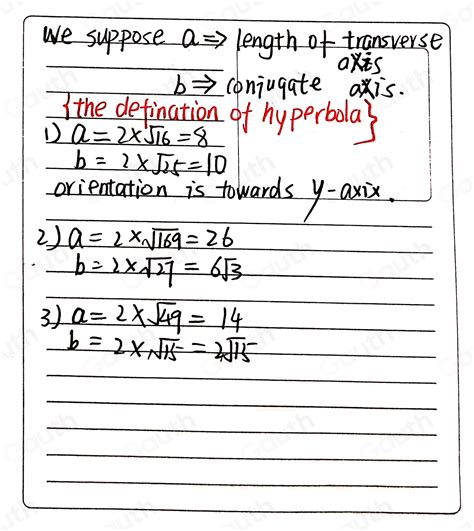 We suppose a ⇒ length of transverse
axis
b ⇒ conjugate axis.
{the defination of hyperbola}
1) a = 2×√16 = 8
b = 2×√25 = 10
orientation is towards y-axix.
2) a = 2×√169 = 26
b = 2×√27 = 6√3
3) a = 2×√49 = 14
b = 2×√15 = 2√15